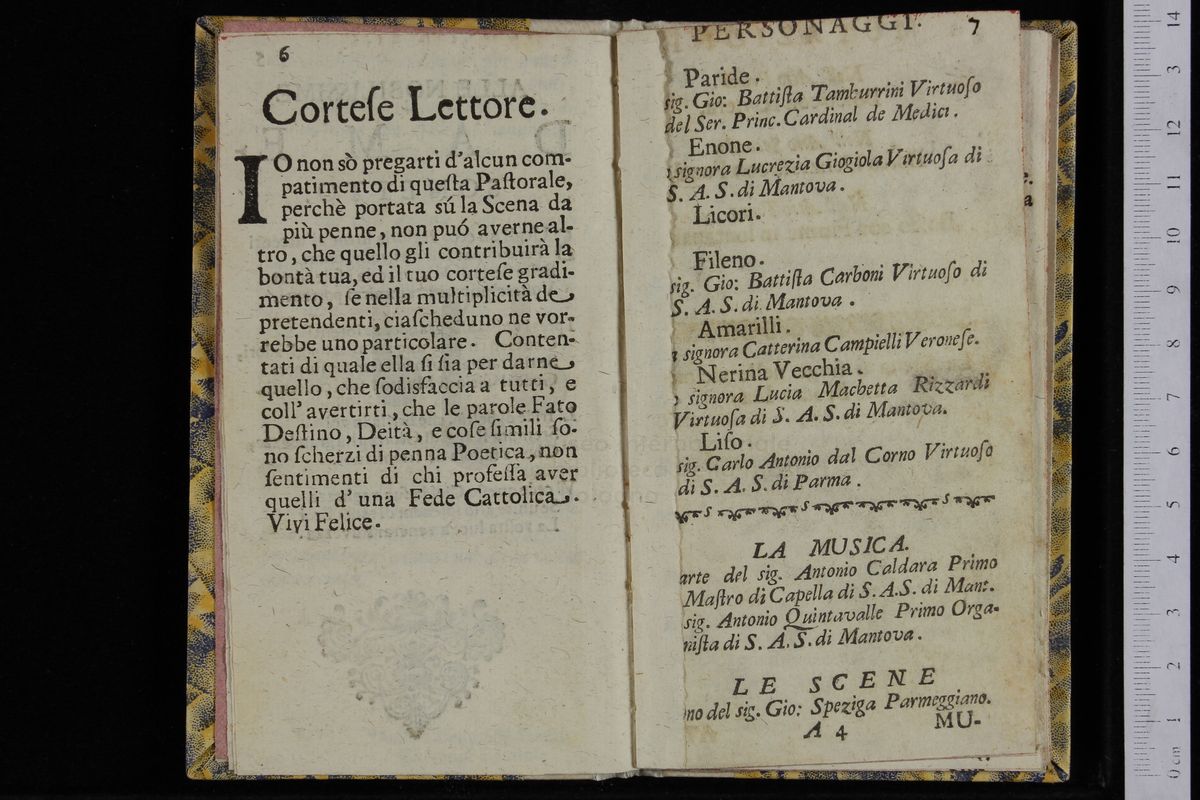 6
Corteſe Lettore.
IO non sò pregarti d'alcun com-
patimento di queſta Paſtorale,
perchè portata sú la Scena da
più penne, non puó averne al-
tro, che quello gli contribuirà la
bontà tua, ed il tuo corteſe gradi-
mento, ſe nella multiplicità de
pretendenti, ciaſcheduno ne vor-
rebbe uno particolare. Conten-
tati di quale ella ſi ſia per darne
quello, che ſodisfaccia a tutti, e
coll' avertirti, che le parole Fato
Deſtino, Deità, e coſe ſimili ſo-
no ſcherzi di penna Poetica, non
ſentimenti di chi profeſſa aver
quelli d' una Fede Cattolica.
Vivi Felice.
PERSONAGGI. 7
Paride.
sig. Gio: Battiſta Tamburrini Virtuoſo
del Ser. Princ. Cardinal de Medici.
Enone.
signora Lucrezia Giogiola Virtuoſa di
S. A. S. di Mantova.
Licori.
Fileno.
sig. Gio: Battiſta Carboni Virtuoſo di
S. A. S. di Mantova.
Amarilli.
signora Catterina Campielli Veroneſe.
Nerina Vecchia.
signora Lucia Machetta Rizzardi
Virtuoſa di S. A. S. di Mantova.
Liſo.
sig. Carlo Antonio dal Corno Virtuoſo
di S. A. S. di Parma.
LA MUSICA.
arte del sig. Antonio Caldara Primo
Maſtro di Capella di S. A. S. di Mant.
sig. Antonio Quintavalle Primo Orga-
niſta di S. A. S. di Mantova.
LE SCENE
no del sig. Gio: Speziga Parmeggiano.
A 4 MU-